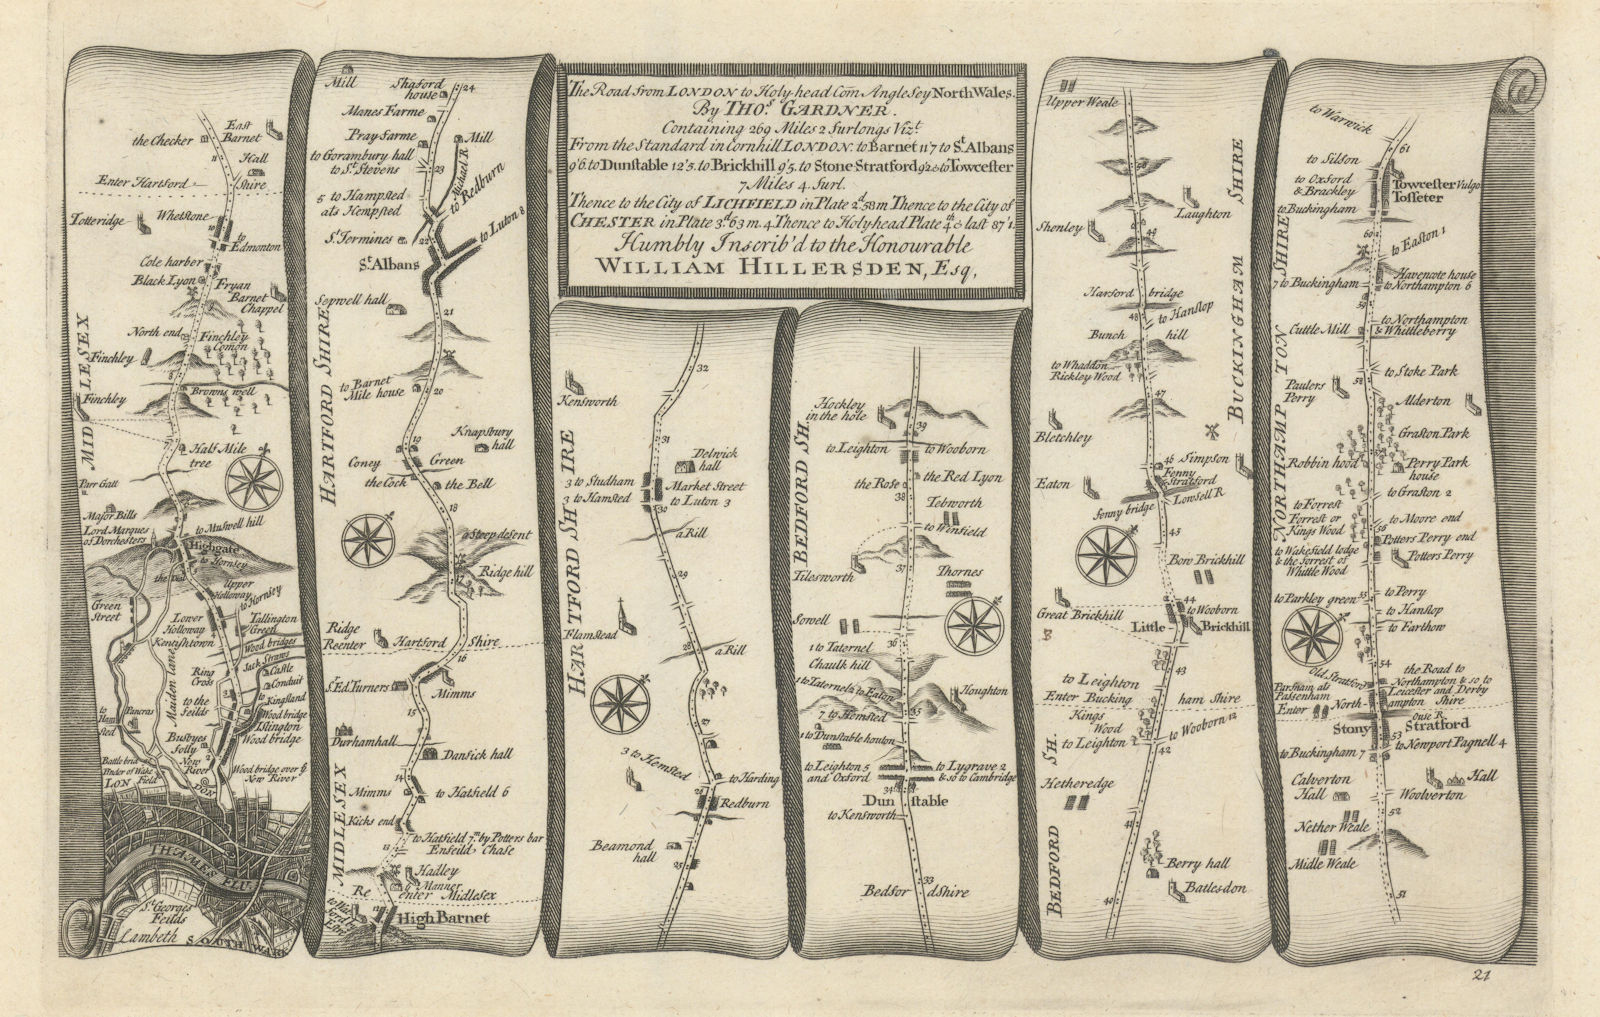 The Road from LONDON to Holy-head Com Anglesey North Wales.
By THO.s GARDNER.
Containing 269 Miles 2 furlongs Viz.t
From the Standard in Cornhill LONDON. to Barnet 11'7 to S.t Albans
9'6. to Dunstable 12'3. to Brickhill 9'5. to Stone-Stratford 9'2 & to Towcester
7 Miles 4 furl.
Thence to the City of LICHFIELD in Plate 2.d 58 m Thence to the City of
CHESTER in Plate 3.d 63 m. 4 Thence to Holyhead Plate 4.th & last 87'1.
Humbly Inscrib'd to the Honourable
WILLIAM HILLERSDEN, Esq,
MIDLESEX
East
Barnet
the Checker
11
Hall
Enter Hartford
Shire
Totteridge
Whetstone
10
to
Edmonton
Cole harber
Black Lyon
Fryan
Barnet
Chappel
North end
Finchley
Comon
Finchley
8
Browns well
Finchley
Half Mile
tree
Parr Gatt
Major Bills
Lord Marques
of Dorchesters
to Muswell hill
Highgate
to Hornsey
Upper
Holloway
to Hornsey
Green
Street
Lower
Holloway
Kentyhtown
Tallington
Green
Wood bridges
Jack Straws
Castle
Ring
Cross
Conduit
to
Kingsland
Maiden lane
to
Ham
sted
Pancras
to the
feilds
Wood bridge
Islington
Wood bridge
Busbyes
folly
New
River
Wood bridge over y.e
New River
Battle brid
LON
DON
THAMES FLU.
S.t Georges
Feilds
Lambeth
SOUTHWARK
HARTFORD SHIRE
MIDLESEX
Mill
Shaford
house
24
Manes Farme
Pray farme
Mill
to Gorambury hall
to S.t Stevens
23
to Redburn
5 to Hampsted
als Hempsted
to Luton 8
S.t Jermines
22
S.t Albans
Sopwell hall
21
to Barnet
Mile house
20
19
Knapsbury
hall
Coney
Green
the Cock
the Bell
18
a Steep desent
Ridge hill
17
Ridge
Reenter
Hartford
Shire
16
S.r Ed. Turners
Mimms
15
Durhamhall
Dansick hall
14
Mimms
to Hatfield 6
Kicks end
to Hatfield 7.m by Potters bar
Enfeild Chase
13
Hadley
Manner
Re
enter Midlesex
12
High Barnet
HARTFORD SHIRE
32
Kensworth
31
Delwick
hall
3 to Studham
Market Street
3 to Hamsted
to Luton 3
30
a Rill
29
Flamstead
28
a Rill
27
3 to Hemsted
to Harding
26
Redburn
Beamond
hall
25
BEDFORD SH.
Hockley
in the hole
39
to Leighton
to Wooborn
the Red Lyon
the Rose
38
Tebworth
to Winfield
Tilesworth
37
Thornes
Sowell
36
1 to Taternel
Chaulk hill
1 to Taternel 2 to Eaton
Houghton
7 to Hemsted
35
1 to Dunstable houton
to Leighton 5
and Oxford
to Lygrave 2
& so to Cambridge
34
Dun
stable
to Kensworth
33
Bedfor
dshire
BUCKINGHAM SHIRE
BEDFORD SH.
Upper Weale
50
Laughton
Shenley
49
Harford
bridge
48
to Hanslop
Bunch
hill
to Whaddon
Rickley Wood
47
Bletchley
46
Simpson
Fenny
Stratford
Eaton
Lonsell R
fenny bridge
45
Bow Brickhill
44
to Wooborn
Great Brickhill
Little
Brickhill
43
to Leighton
Enter Bucking
ham Shire
Kings
Wood
to Wooborn 12
to Leighton
42
Hetheredge
41
Berry hall
Batlesdon
40
NORTHAMP TON SHIRE
to Warwick
61
to Silson
to Oxford
& Brackley
Towcester Vulgo
Tosseter
to Buckingham
60
to Easton 1
Havencote house
7 to Buckingham
to Northampton 6
59
to Northampton
Cuttle Mill
& Whittleberry
to Stoke Park
58
Paulers
Perry
Alderton
Grafton Park
Robbin hood
Perry Park
house
to Grafton 2
to Forrest
Forrest or
Kings Wood
56
to Moore end
Potters Perry end
to Wakefield lodge
& the forrest of
Whittle Wood
Potters Perry
to Parkley green
55
to Perry
to Hanslop
to Farthow
54
Old Stratford
the Road to
Northampton & so to
Leicester and Derby
Parsnam als
Passenham
Enter
North
ampton Shire
Ouse R.
Stony
Stratford
53
to Buckingham 7
to Newport Pagnell 4
Calverton
Hall
Hall
Woolverton
52
Nether Weale
Midle Weale
51
21